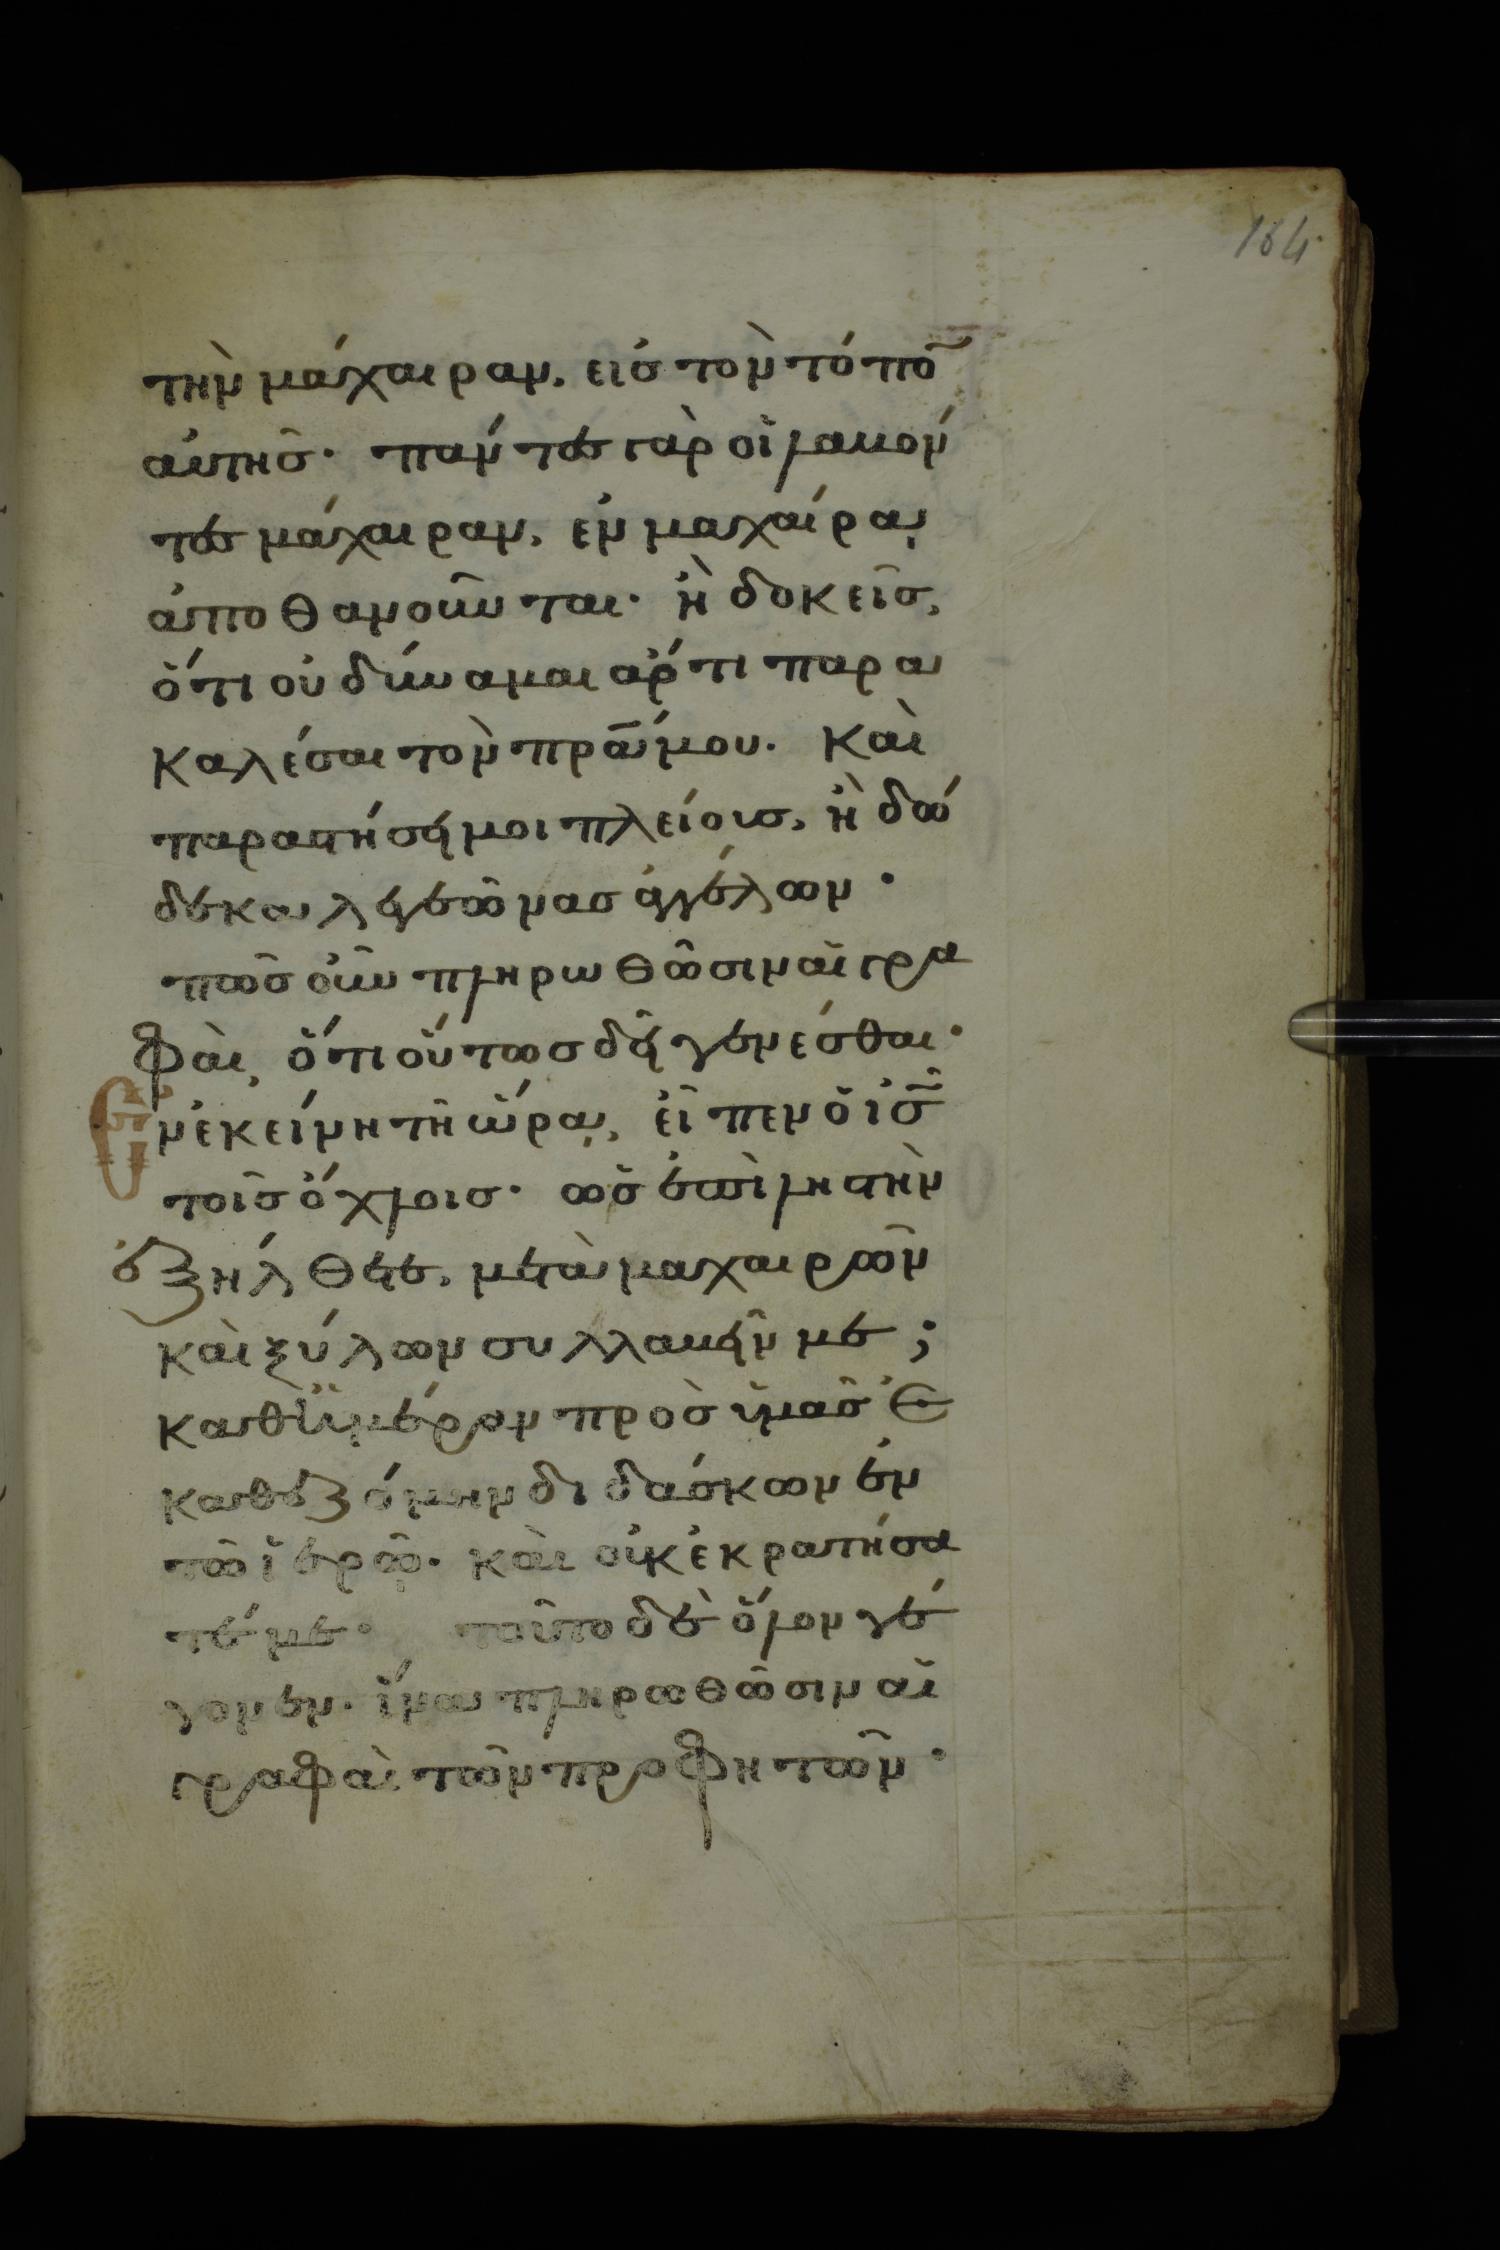 184
τὴν μάχαιραν, εἰς τὸν τόπο̃
αὐτῆς· πάντες γὰρ οἱ λαβόν
τες μάχαιραν, ἐν μαχαίρᾳ
ἀποθανοῦνται· ἢ δοκεῖς,
ὅτι οὐ δύναμαι ἄρτι παρα
καλέσαι τὸν πρ̅α̅ μου. καὶ
παραστήσει μοι πλείους, ἢ δώ
δεκα λεγεῶνας ἀγγέλων·
πῶς οὖν πληρωθῶσιν αἱ γρα
φαὶ, ὅτι οὕτως δεῖ γενέσθαι·
Ἐν ἐκείνη τῆ ὥρᾳ, εἶπεν ὁ ι̅ς̅
τοῖς ὄχλοις· ὡς ἐπὶ ληστὴν
ἐξήλθετε, μετὰ μαχαιρῶν
καὶ ξύλων συλλαβεῖν με;
καθ' ἡμέραν πρὸς ὑμᾶς ἐ
καθεζόμην διδάσκων ἐν
τῶ ἱερῷ· καὶ οὐκ ἐκρατήσα
τέ με· τοῦτο δὲ ὅλον γέ
γονεν. ἵνα πληρωθῶσιν αἱ
γραφαὶ τῶν προφητῶν·